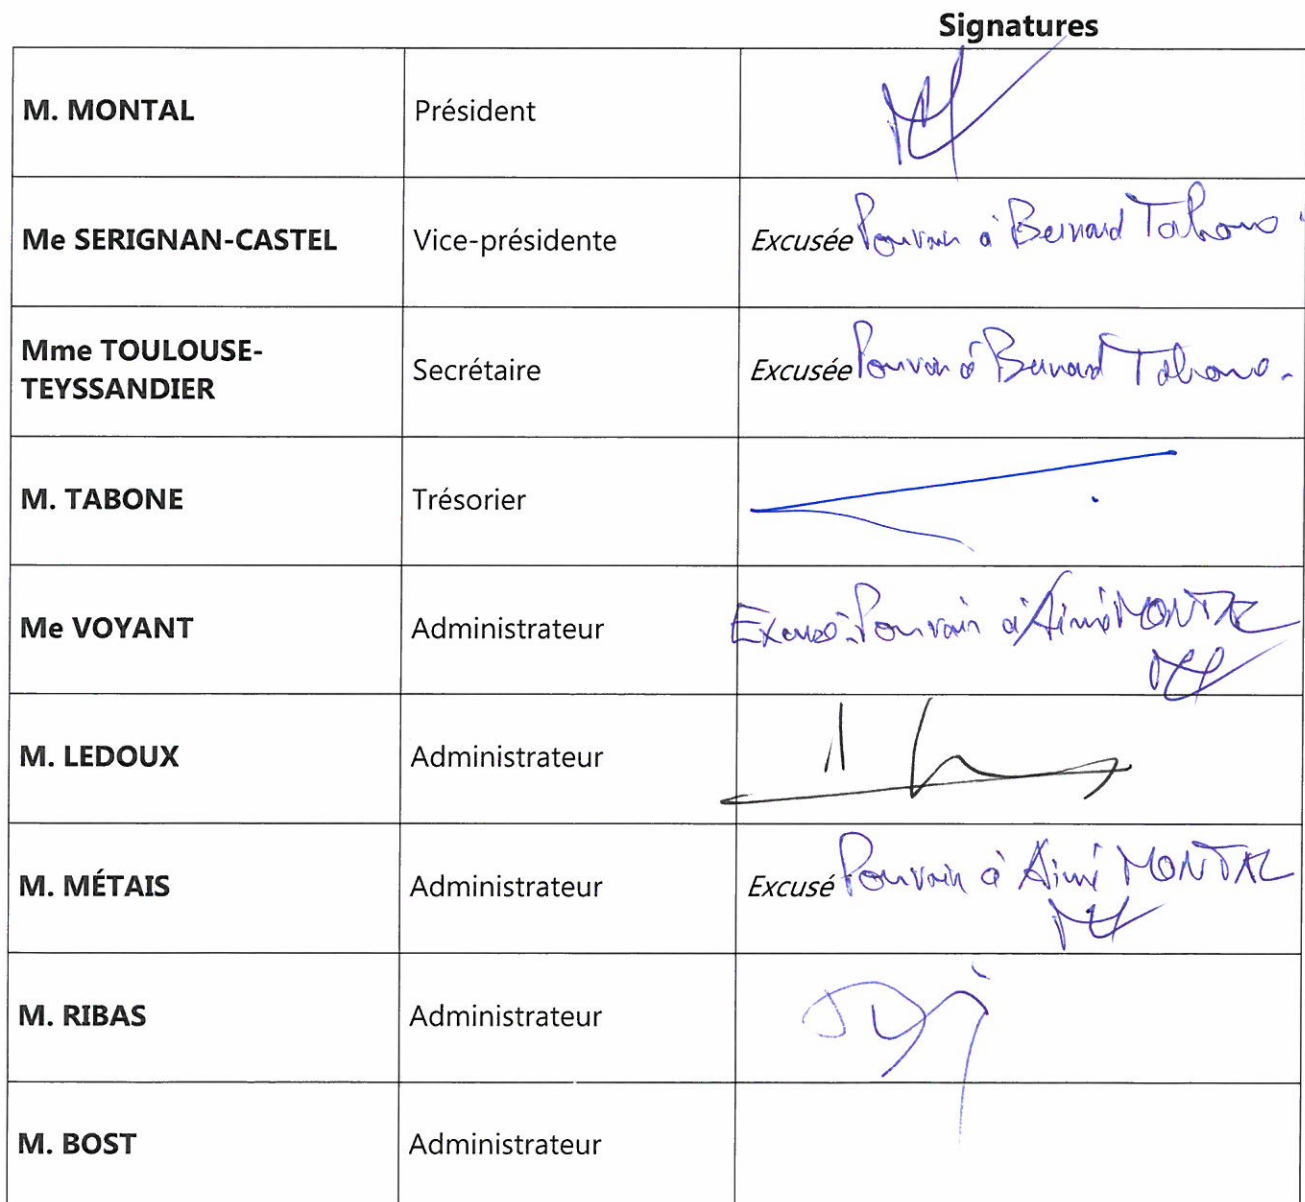 Signatures
M. MONTAL Président
Me SERIGNAN-CASTEL Vice-présidente Excusée Pouvoir à Bernard Tabone
Mme TOULOUSE-
TEYSSANDIER Secrétaire Excusée Pouvoir à Bernard Tabone.
M. TABONE Trésorier
Me VOYANT Administrateur Excusé. Pouvoir à Aimé MONTAL
M. LEDOUX Administrateur
M. MÉTAIS Administrateur Excusé Pouvoir à Aimé MONTAL
M. RIBAS Administrateur
M. BOST Administrateur